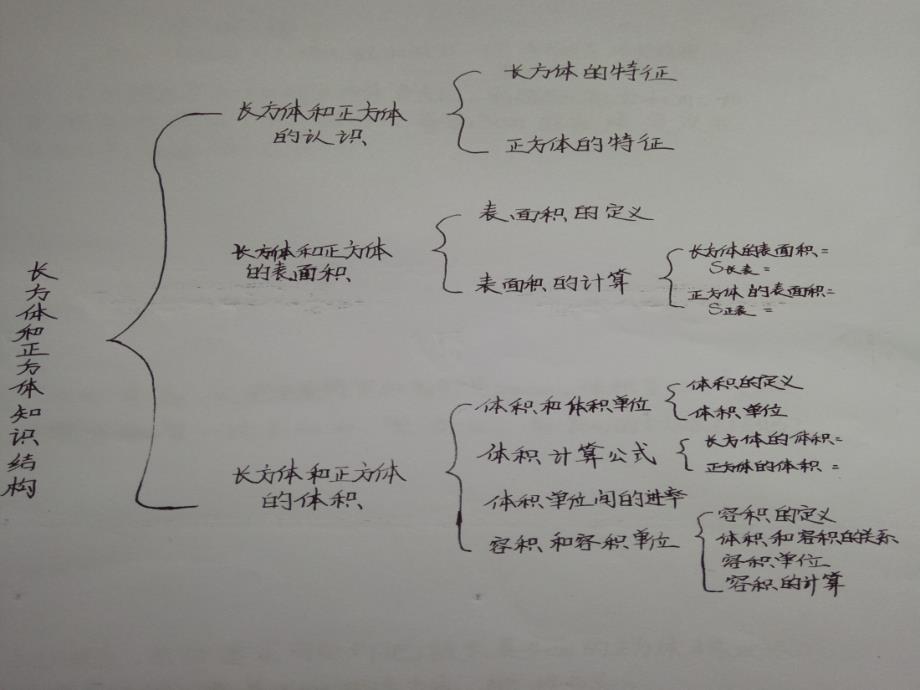 长方体和正方体知识结构
长方体和正方体
的认识
长方体的特征
正方体的特征
长方体和正方体
的表面积
表面积的定义
表面积的计算
长方体的表面积=
S长表=
正方体的表面积=
S正表=
长方体和正方体
的体积
体积和体积单位
体积的定义
体积单位
体积计算公式
长方体的体积=
正方体的体积=
体积单位间的进率
容积和容积单位
容积的定义
体积和容积的关系
容积单位
容积的计算